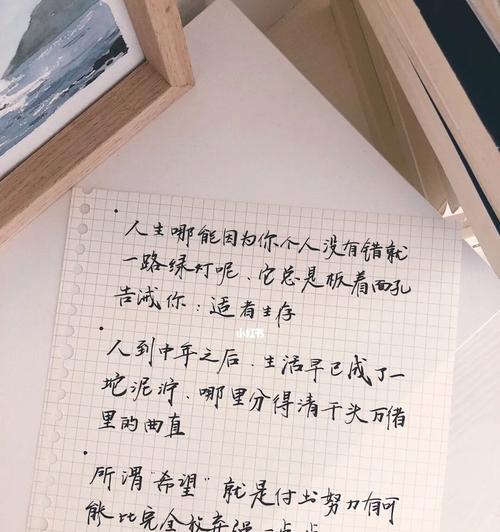 人生哪能因为你个人没有错就
一路绿灯呢、它总是板着面孔
告诫你：适者生存
小红书
人到中年之后，生活早已成了一
坨泥泞、哪里分得清千头万绪
里的曲直
所谓“希望”就是付出努力有可
能比完全放弃强一点点